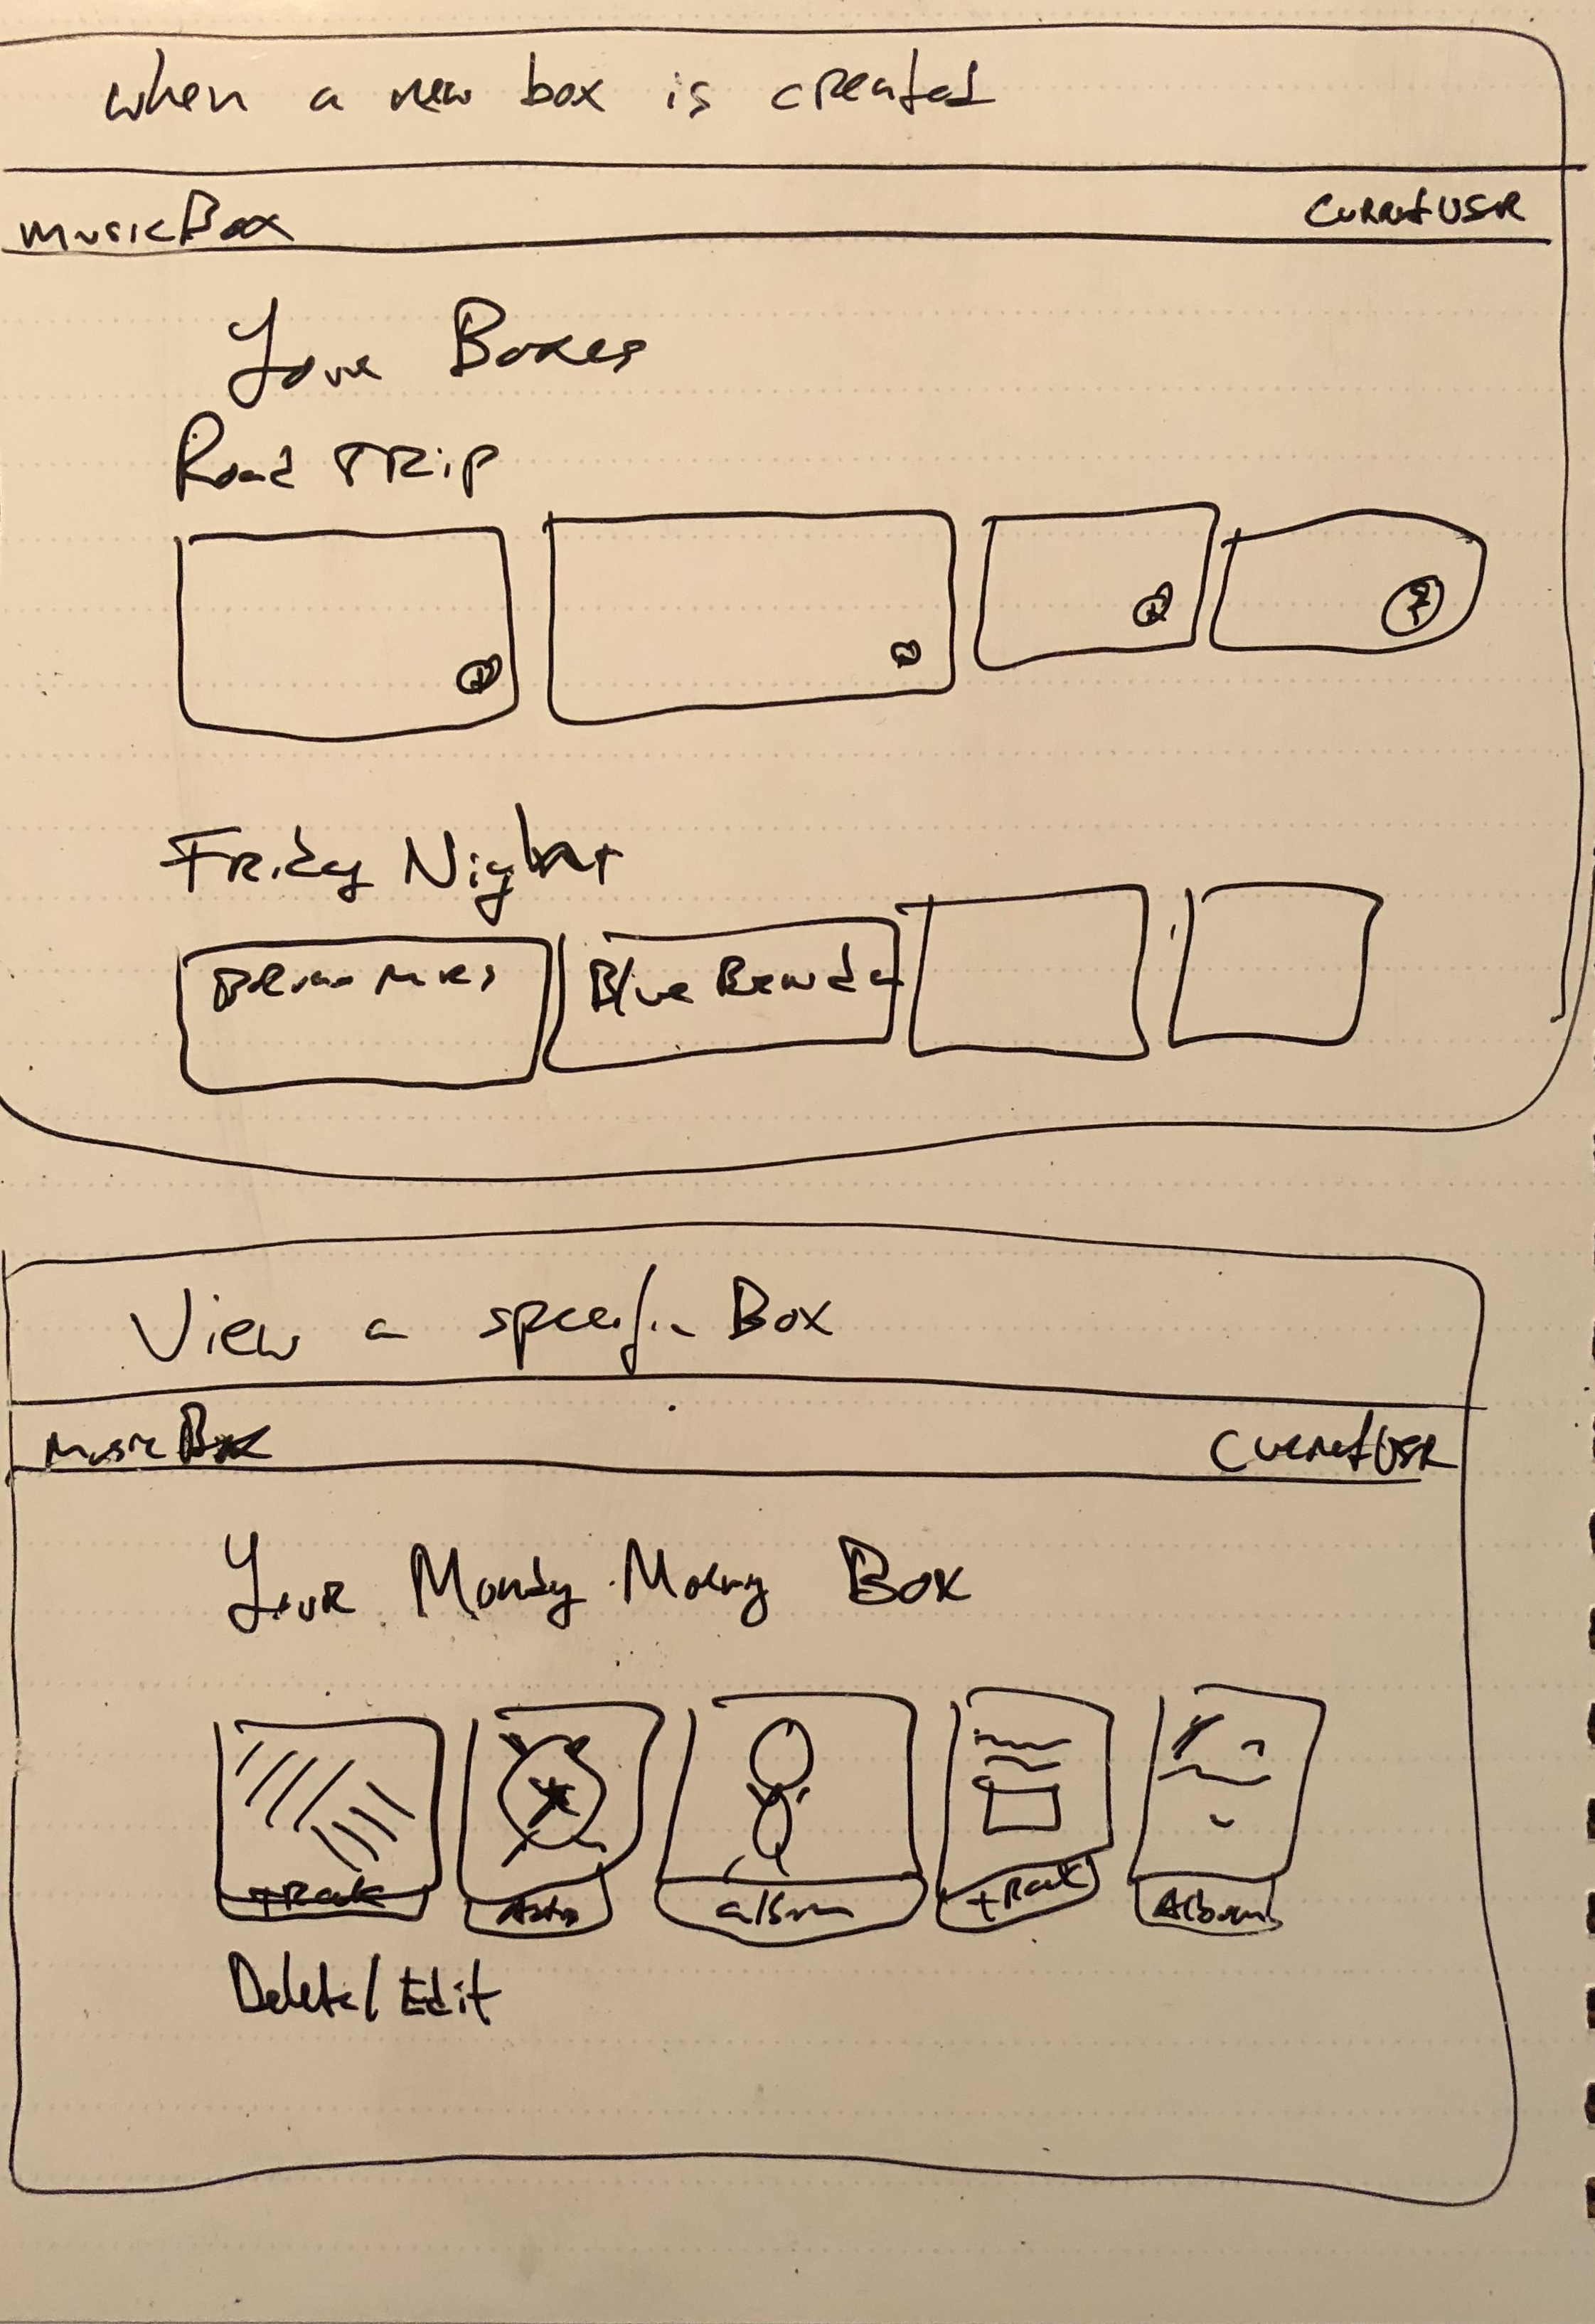 when a new box is created
musicBox CurrentUSR
Your Boxes
Road TRip
Friday Night
Bruno Mars Blue Bayou
View a specific Box
Music Box CurrentUSR
Your Monday Morning Box
track Artist album track Album
Delete/Edit